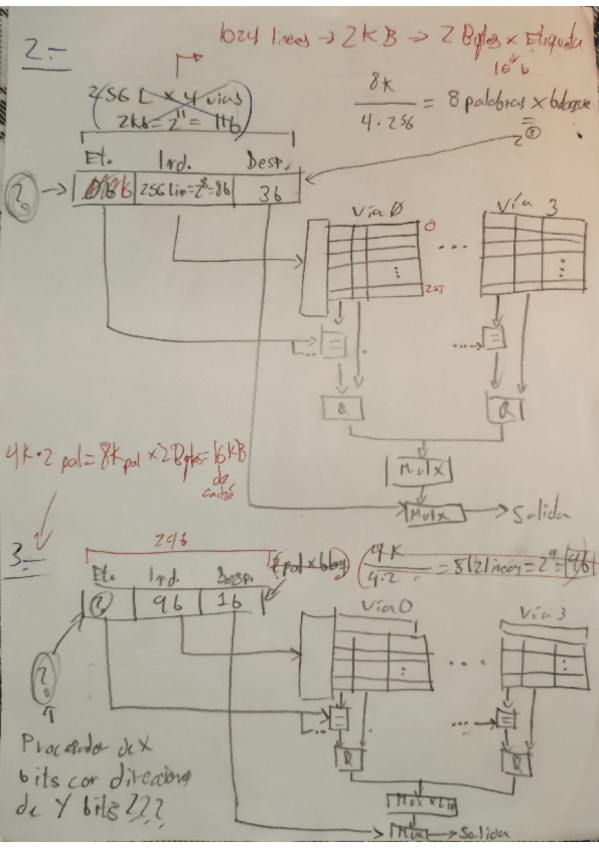 2.-
1024 lineas → 2KB → 2 Bytes x Etiqueta
16 b
256 L x 4 vias
2kb = 2^11 = 11b
8K
4 · 256
= 8 palabras x bloque
2^3
Et. Ind. Desp.
16b 256 lin = 2^8 = 8b 3b
?
Vía 0 Vía 3
0
...
255
=
=
&
&
Mulx
Mulx → Salida
4K · 2 pal = 8K pal x 2 Bytes = 16KB
de
caché
3.-
24b
Et. Ind. Desp.
? 9b 1b
(2 pal x bloq)
4K
4 · 2
= 512 lineas = 2^9 = 9b
Vía 0 Vía 3
...
?
=
=
&
&
Procesador de X
bits con direcciones
de Y bits???
Mulx → Salida